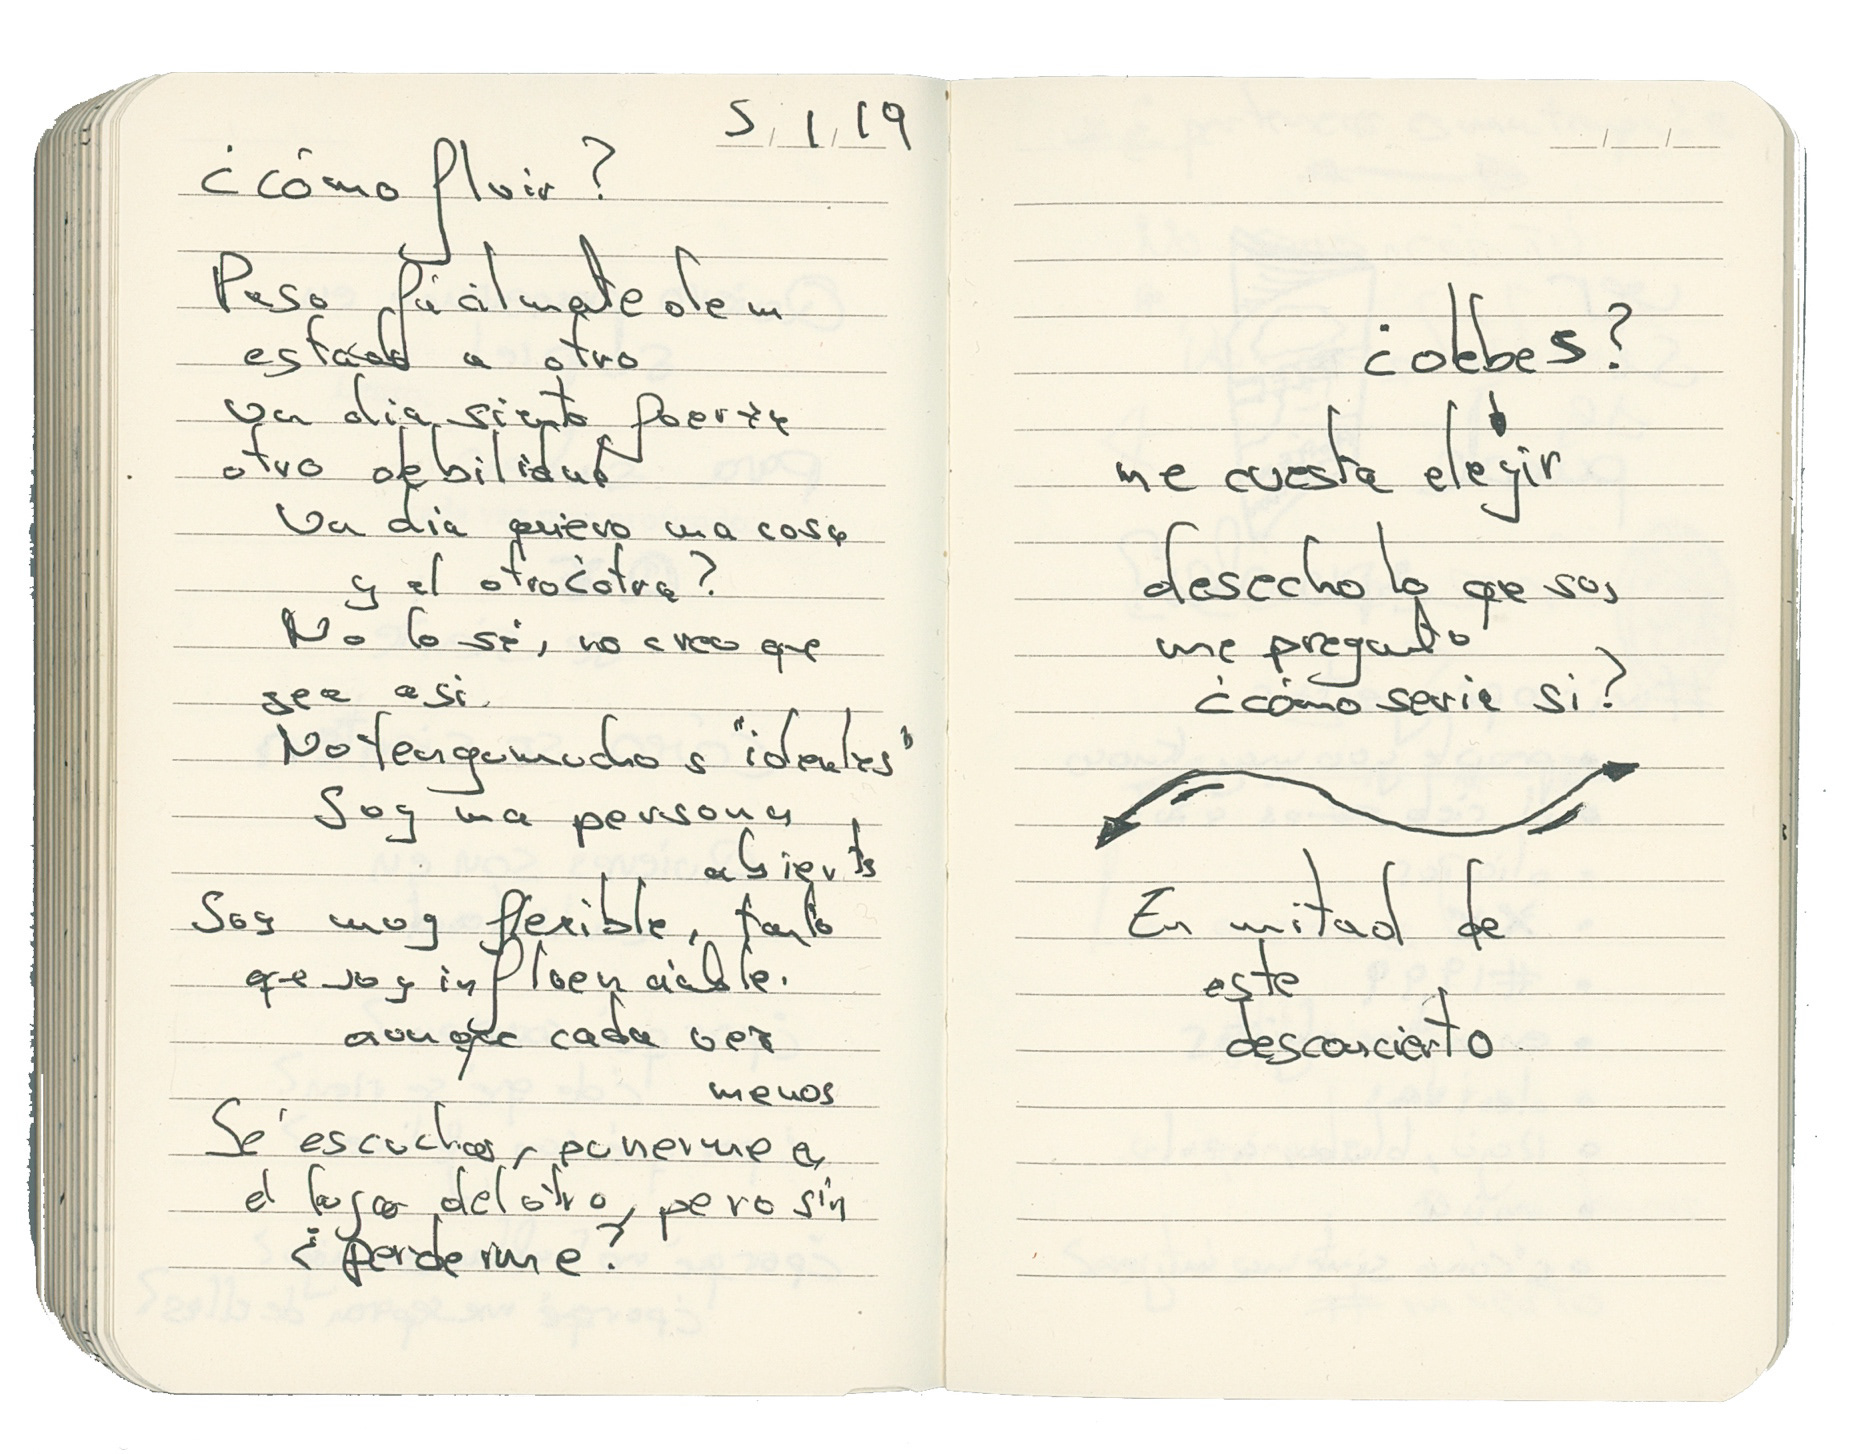 5 1 19
¿cómo fluir?
Paso fácilmente de un
estado a otro
un dia siento fuerza
otro debilidad
Un dia quiero una cosa
y el otro ¿otra?
No lo sé, no creo que
sea asi.
No tengo muchos "ideales"
Soy una persona
abierta
Soy muy flexible, tanto
que soy influenciable.
aunque cada vez
menos
Sé escuchar, ponerme en
el lugar del otro, pero sin
¿perderme?
¿debes?
me cuesta elegir
desecho lo que soy
me pregunto
¿cómo seria si?
En mitad de
este
desconcierto